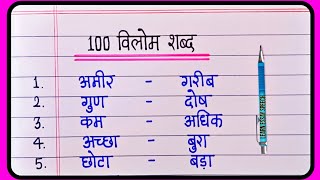 100 विलोम शब्द
1. अमीर - गरीब
2. गुण - दोष
3. कम - अधिक
4. अच्छा - बुरा
5. छोटा - बड़ा